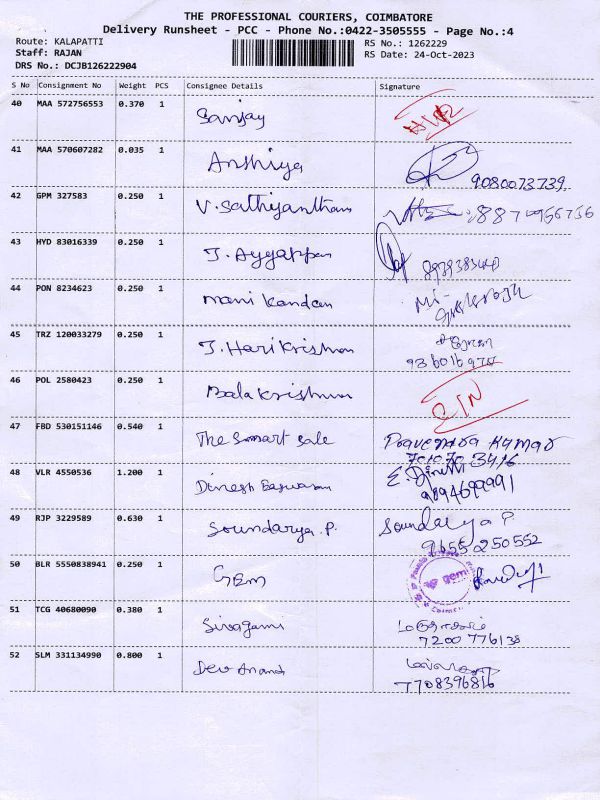 THE PROFESSIONAL COURIERS, COIMBATORE
Delivery Runsheet - PCC - Phone No.:0422-3505555 - Page No.:4
Route: KALAPATTI RS No.: 1262229
Staff: RAJAN RS Date: 24-Oct-2023
DRS No.: DCJB126222904
S No Consignment No Weight PCS Consignee Details Signature
40 MAA 572756553 0.370 1 Sanjay
41 MAA 570607282 0.035 1 Anshiya 9080073739
42 GPM 327583 0.250 1 V. Sathiyantham 8870956756
43 HYD 83016339 0.250 1 J. Ayyappan
44 PON 8234623 0.250 1 Mani Kandan
45 TRZ 120033279 0.250 1 J. Hari Krishnan
46 POL 2580423 0.250 1 Bala Krishnan
47 FBD 530151146 0.540 1 The Smart Sale Praveenra Kumar
7010703416
48 VLR 4550536 1.200 1 Dinesh Baswaran
9894699991
49 RJP 3229589 0.630 1 Soundarya. P. Soundarya P
9655250552
50 BLR 5550838941 0.250 1 GEM gem
51 TCG 40680090 0.380 1 Sivagami
7200 776138
52 SLM 331134990 0.800 1 Dev Anand
7708396816